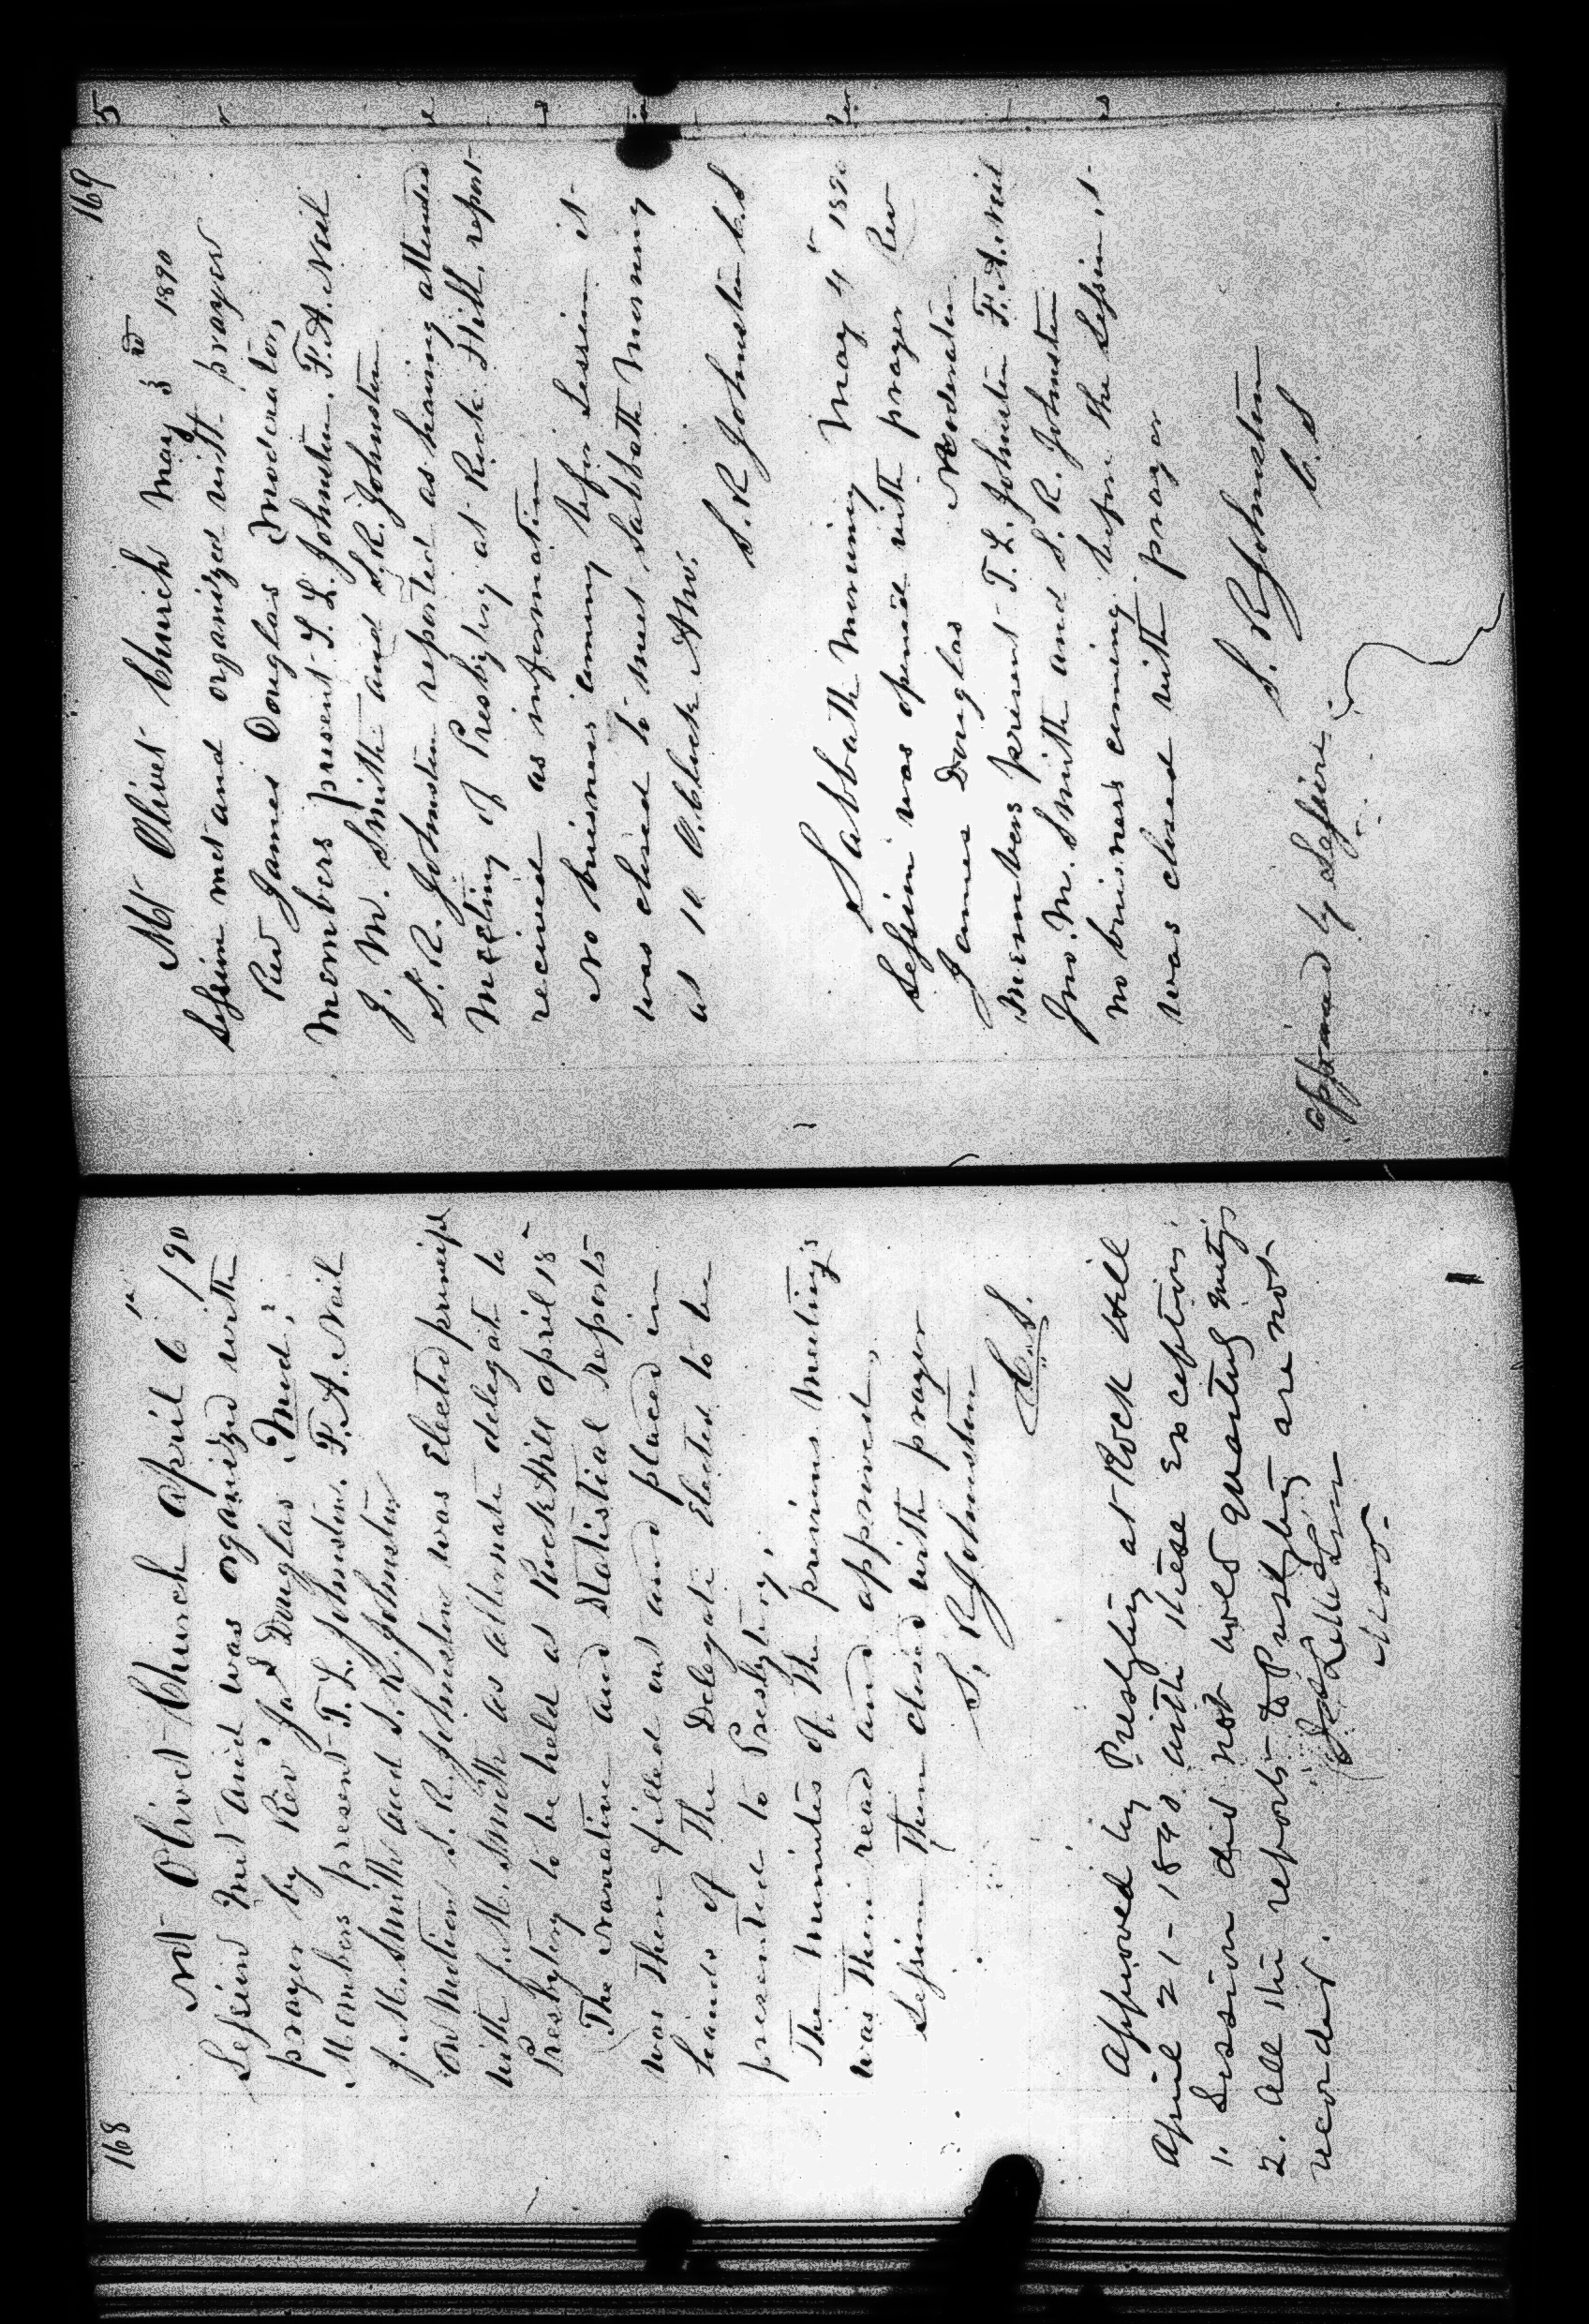 168
Mt Olivet Church April 6th /90
Session Met and was organized with
prayer by Rev Jas Douglas Mod;
Members present T. L. Johnston. F. A. Neil
J. M. Smith and S. R. Johnston
On Motion S. R. Johnston was Elected principl
with J. M. Smith as alternate delegate to
Presbytery to be held at Rock Hill April 18th
The Narrative and Statistial reports
was then filled out and placed in
hands of The Delegate Elected to be
presented to Presbytery.
The Minutes of The previous Meetings
was then read and approved,
Session Then closed with prayer
S. R Johnston
C. S.
Approved by Presbytery at Rock Hill
April 21- 1890 with these exceptions.
1. Session did not hold quarterly meetgs
2. All the reports to Presbytery are not
recorded.
Mod.
169
Mt Olivet Church May 3rd 1890
Session met and organized with prayer
Rev James Douglas Moderator,
Members present T. L. Johnston. F. A. Neil
J. M. Smith and S. R. Johnston
S. R. Johnston reported as having attended
Meeting of Presbytery at Rock Hill, report
received as information
No business coming befor Session it
was closed to meet Sabbath Morning
at 10 Oclock A.M.
S. R Johnston C. S
Sabbath Morning May 4th 1890
Session was opened with prayer Rev
James Douglas Moderator
Members present T. L. Johnston F. A. Neil
Jno. M. Smith and S. R. Johnston
no business coming before the Session it
was closed with prayer
S. R Johnston
C. S
approved by Session